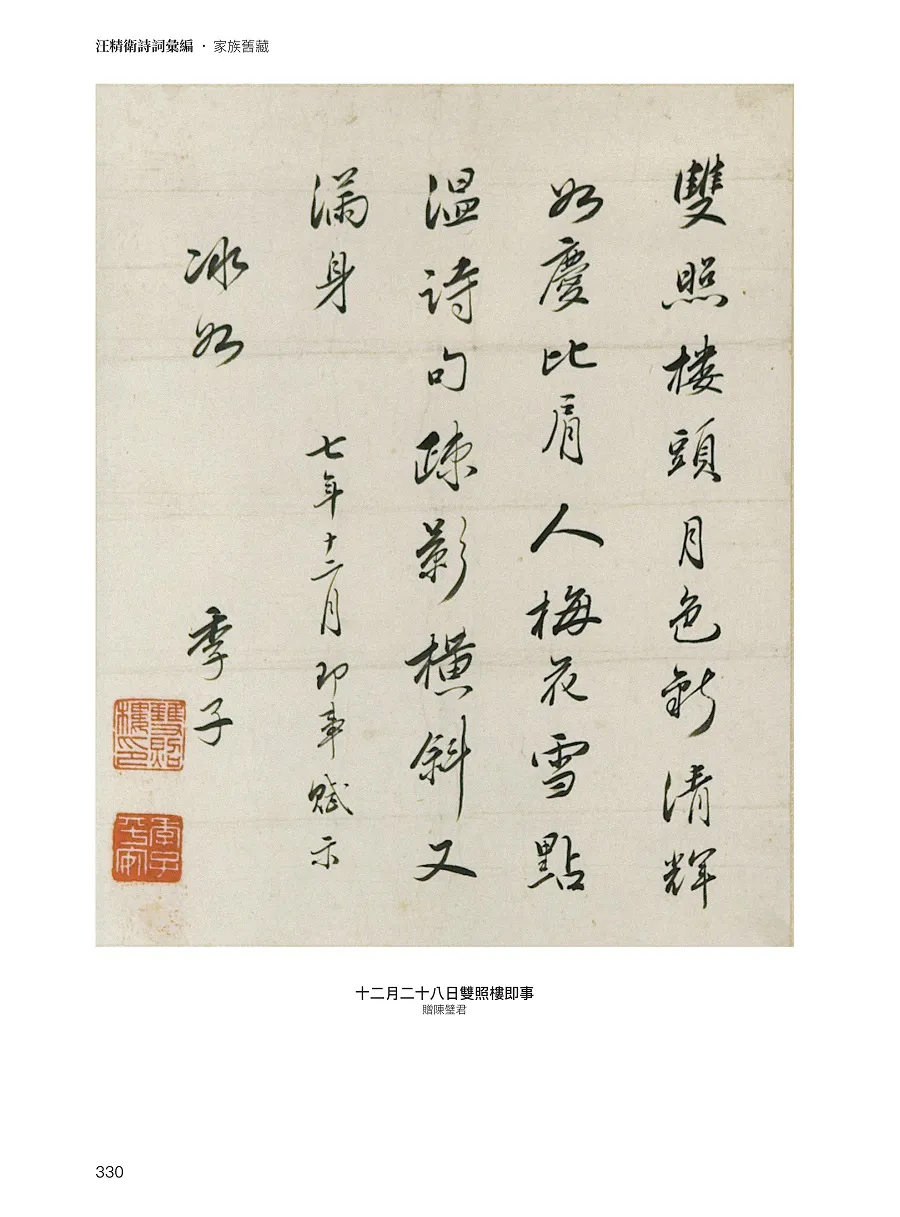 汪精衛詩詞彙編 · 家族舊藏
雙照樓頭月色新清輝
如慶比肩人梅花雪點
溫詩句疎影橫斜又
滿身 七年十二月即事賦示
冰如 季子
雙照樓印
季子平安
十二月二十八日雙照樓即事
贈陳璧君
330